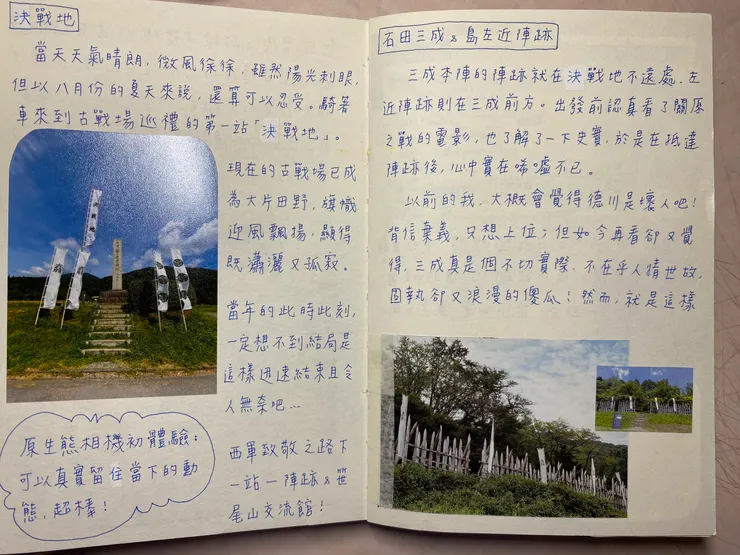 決戰地
當天天氣晴朗,微風徐徐,雖然陽光刺眼,
但以八月份的夏天來說,還算可以忍受。騎著
車來到古戰場巡禮的第一站「決戰地」。
現在的古戰場已成
為大片田野,旗幟
迎風飄揚,顯得
既瀟灑又孤寂。
當年的此時此刻,
一定想不到結局是
這樣迅速結束且令
人無奈吧…
西軍致敬之路下
一站—陣跡&笹
尾山交流館!
原生熊相機初體驗:
可以真實留住當下的動
態,超棒!
決戰地
石田三成&島左近陣跡
三成本陣的陣跡就在決戰地不遠處,左
近陣跡則在三成前方。出發前認真看了關原
之戰的電影,也了解了一下史實,於是在抵達
陣跡後,心中實在唏噓不已。
以前的我,大概會覺得德川是壞人吧!
背信棄義,只想上位;但如今再看卻又覺
得,三成真是個不切實際、不在乎人情世故,
固執卻又浪漫的傻瓜!然而,就是這樣